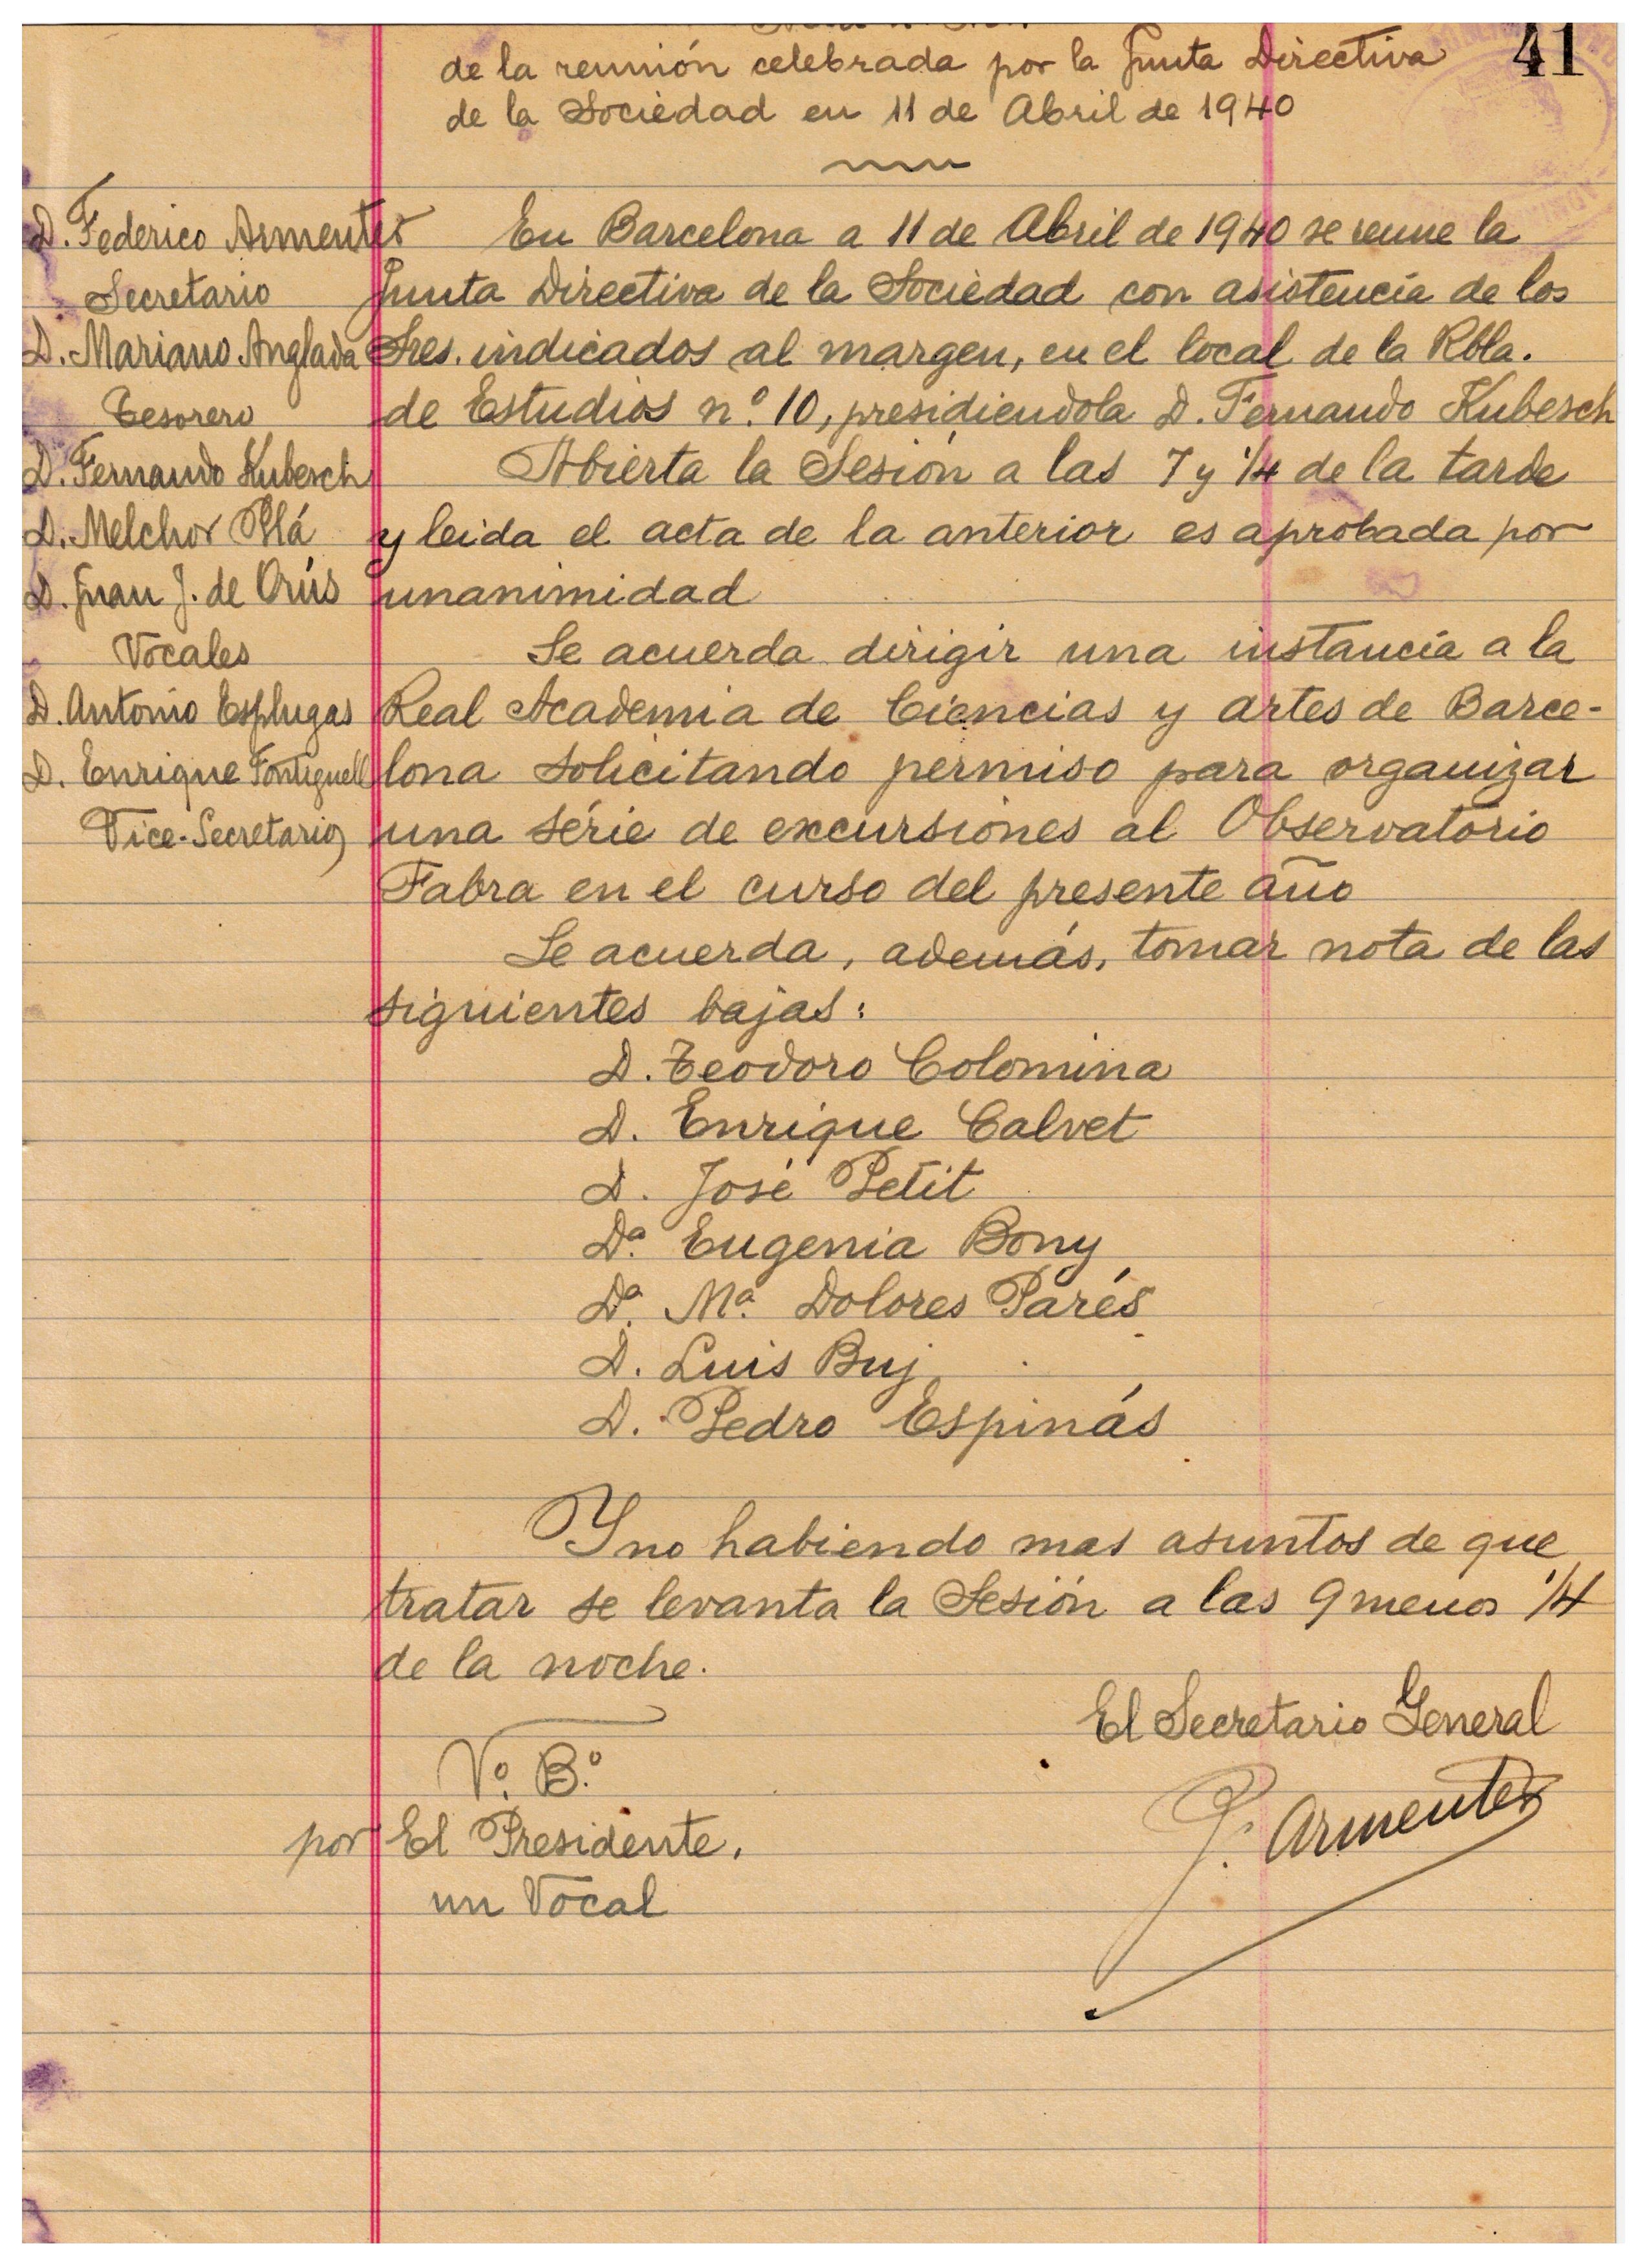 41
de la reunión celebrada por la Junta Directiva
de la Sociedad en 11 de Abril de 1940
D. Federico Armenter
Secretario
D. Mariano Anglada
Tesorero
D. Fernando Kubesch
D. Melchor Plá
D. Juan J. de Orús
Vocales
D. Antonio Esplugas
D. Enrique Fontiguell
Vice-Secretario
En Barcelona a 11 de Abril de 1940 se reune la
Junta Directiva de la Sociedad con asistencia de los
Sres. indicados al margen, en el local de la Rbla.
de Estudios n.º 10, presidiendola D. Fernando Kubesch
Abierta la Sesión a las 7 y 1/4 de la tarde
y leida el acta de la anterior es aprobada por
unanimidad
Se acuerda dirigir una instancia a la
Real Academia de Ciencias y artes de Barce-
lona solicitando permiso para organizar
una série de excursiones al Observatorio
Fabra en el curso del presente año
Se acuerda, además, tomar nota de las
siguientes bajas:
D. Teodoro Colomina
D. Enrique Calvet
D. José Petit
Dª. Eugenia Bony
Dª. Mª. Dolores Parés
D. Luis Buj
D. Pedro Espinás
Y no habiendo mas asuntos de que
tratar se levanta la Sesión a las 9 menos 1/4
de la noche.
El Secretario General
Vº. Bº.
F. Armenter
por El Presidente,
un Vocal